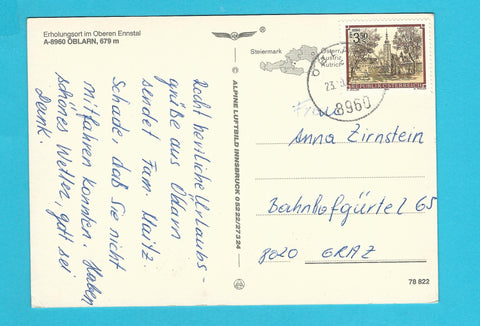 Erholungsort im Oberen Ennstal
A-8960 ÖBLARN, 679 m
Recht herzliche Urlaubs-
grüße aus Öblarn
sendet Fam. Maitz.
Schade, daß Sie nicht
mitfahren konnten. Haben
schönes Wetter, gott sei
Dank.
© ALPINE LUFTBILD INNSBRUCK 05222/27324
Steiermark
Österr.
Austria
Autriche
3.50
REPUBLIK ÖSTERREICH
23.
8960
Frau
Anna Zirnstein
Bahnhofgürtel 65
8020 GRAZ
78 822